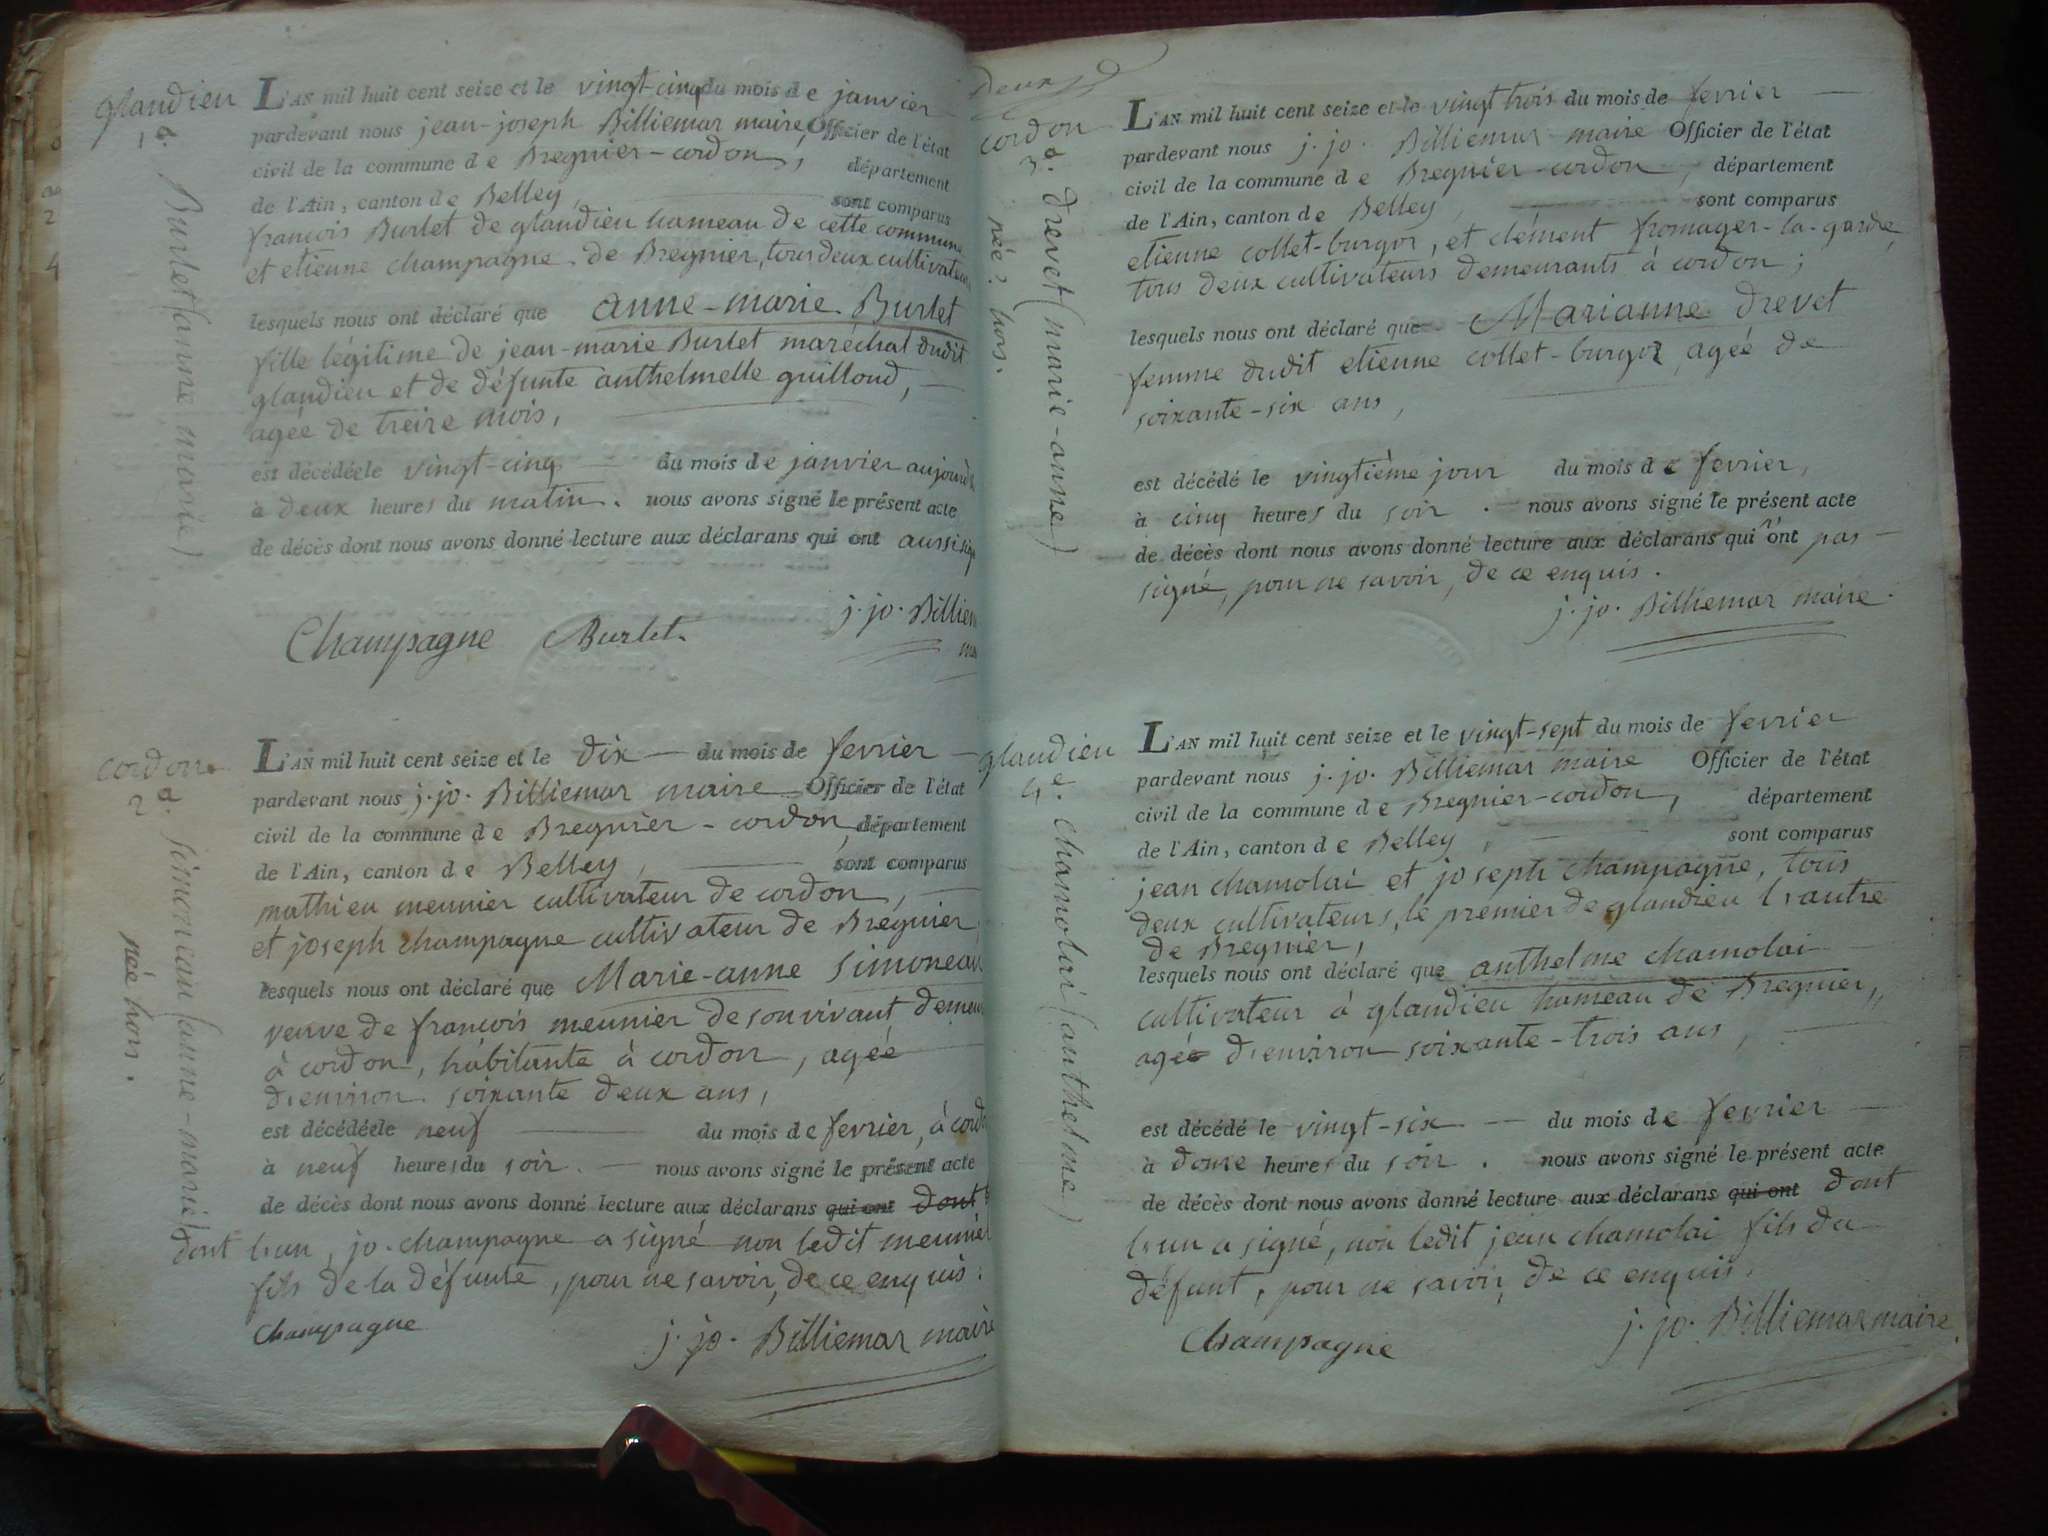 glandieu
1.d
Burlet (anne marie)
L'AN mil huit cent seize et le vingt-cinq du mois de janvier
pardevant nous jean-joseph Billiemar maire, Officier de l'état
civil de la commune de Bregnier-cordon, département
de l'Ain, canton de Belley, sont comparus
françois Burlet de glandieu hameau de cette commune
et etienne champagne de Bregnier, tous deux cultivateurs
lesquels nous ont déclaré que anne-marie Burlet
fille légitime de jean-marie Burlet maréchal dudit
glandieu et de défunte anthelmette guilloud,
agée de treize mois,
est décédée le vingt-cinq du mois de janvier
à deux heures du matin. nous avons signé le présent acte
de décès dont nous avons donné lecture aux déclarans qui ont aussi
j. jo. Billiem
Champagne Burlet.
cordon
2.d
simoneau (anne-marie)
née hors.
L'AN mil huit cent seize et le dix du mois de fevrier
pardevant nous j. jo. Billiemar maire Officier de l'état
civil de la commune de Bregnier-cordon, département
de l'Ain, canton de Belley, sont comparus
mathieu meunier cultivateur de cordon,
et joseph champagne cultivateur de Bregnier,
lesquels nous ont déclaré que Marie-anne Simoneau
veuve de françois meunier de son vivant
à cordon, habitante à cordon, agée
d'environ soixante deux ans,
est décédée le neuf du mois de fevrier, à
à neuf heures du soir. nous avons signé le présent acte
de décès dont nous avons donné lecture aux déclarans qui ont dont
dont l'un, jo. champagne a signé non ledit meunier
fils de la défunte, pour ne savoir, de ce enquis.
Champagne j. jo. Billiemar maire
deux
cordon
3.d
drevet (marie-anne)
née? hors.
L'AN mil huit cent seize et le vingt trois du mois de fevrier
pardevant nous j. jo. Billiemar maire Officier de l'état
civil de la commune de Bregnier-cordon, département
de l'Ain, canton de Belley, sont comparus
etienne collet-burgoz, et clément fromager-la-garde,
tous deux cultivateurs demeurants à cordon;
lesquels nous ont déclaré que Marianne drevet
femme dudit etienne collet-burgoz, agée de
soixante-six ans,
est décédé le vingtième jour du mois de fevrier,
à cinq heures du soir. nous avons signé le présent acte
de décès dont nous avons donné lecture aux déclarans qui n'ont pas
signé, pour ne savoir, de ce enquis.
j. jo. Billiemar maire.
glandieu
4.e
chamolai (anthelme)
L'AN mil huit cent seize et le vingt-sept du mois de fevrier
pardevant nous j. jo. Billiemar maire Officier de l'état
civil de la commune de Bregnier-cordon, département
de l'Ain, canton de Belley, sont comparus
jean chamolai et joseph champagne, tous
deux cultivateurs, le premier de glandieu l'autre
de Bregnier,
lesquels nous ont déclaré que anthelme chamolai
cultivateur à glandieu hameau de Bregnier,
agé d'environ soixante-trois ans,
est décédé le vingt-six du mois de fevrier
à douze heures du soir. nous avons signé le présent acte
de décès dont nous avons donné lecture aux déclarans qui ont dont
l'un a signé, non ledit jean chamolai fils du
défunt, pour ne savoir, de ce enquis.
j. jo. Billiemar maire.
Champagne